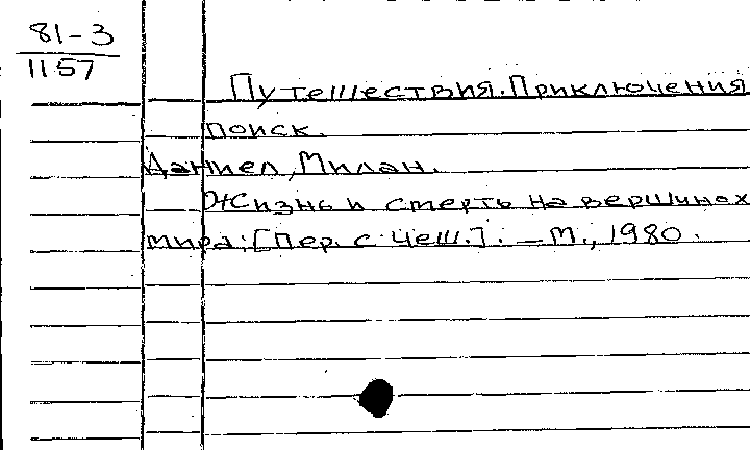 81-3
1157
Путешествия. Приключения
поиск.
Даниел, Милан.
Жизнь и смерть на вершинах
мира: [Пер. с чеш.]. – М., 1980.